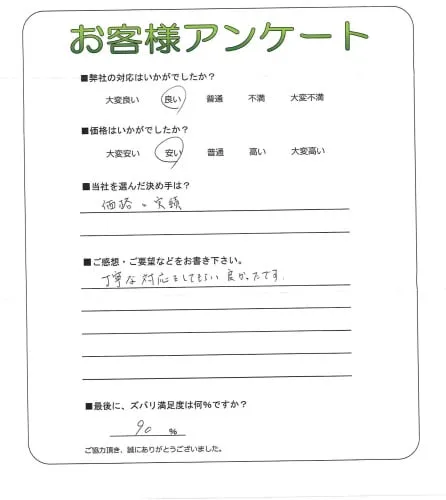 お客様アンケート
■弊社の対応はいかがでしたか?
大変良い 良い 普通 不満 大変不満
■価格はいかがでしたか?
大変安い 安い 普通 高い 大変高い
■当社を選んだ決め手は?
価格と実績
■ご感想・ご要望などをお書き下さい。
丁寧な対応をしてもらい良かったです。
■最後に、ズバリ満足度は何%ですか?
90 %
ご協力頂き、誠にありがとうございました。